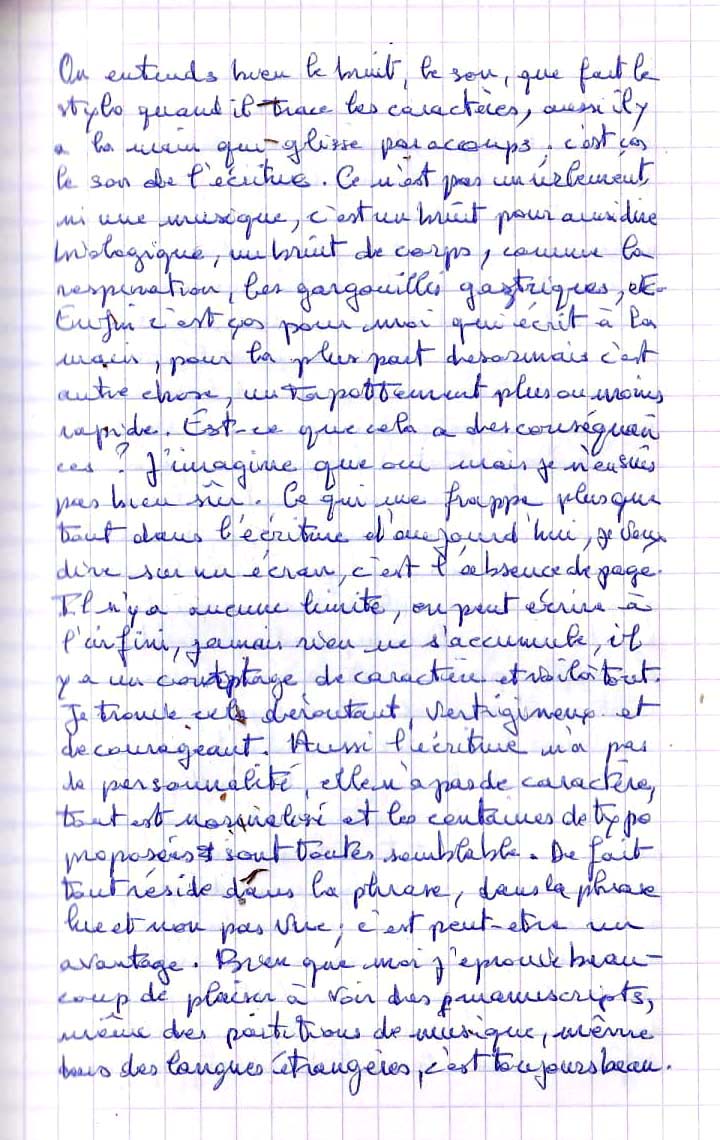 On entends bien le bruit, le son, que fait le
stylo quand il trace les caractères, aussi il y
a la main qui glisse par accoups, c'est ças
le son de l'écriture. Ce n'est pas un
ni une musique, c'est un bruit pour ainsi dire
biologique, un bruit de corps, comme la
respiration, les gargouillis gastriques, etc
Enfin c'est ças pour moi qui écrit à la
main, pour la plus part desormais c'est
autre chose, un tapottement plus ou moins
rapide. Est-ce que cela a des conséquen
ces ? J'imagine que oui mais je n'en suis
pas bien sûr. Ce qui me frappe plus que
tout dans l'écriture d'aujourd'hui, je veux
dire sur un écran, c'est l'absence de page.
Il n'y a aucune limite, on peut écrire à
l'infini, jamais rien ne s'accumule, il
y a un comptage de caractère et voilà tout.
Je trouve cela déroutant, vertigineux et
decourageant. Aussi l'écriture n'a pas
de personnalité, elle n'a pas de caractère,
tout est normalisé et les centaines de typo
proposées sont toutes semblable. De fait
tout réside dans la phrase, dans la phrase
lue et non pas vue, c'est peut-etre un
avantage. Bien que moi j'eprouve beau-
coup de plaisir à voir des manuscripts,
même des partitions de musique, même
dans des langues étrangères, c'est toujours beau.